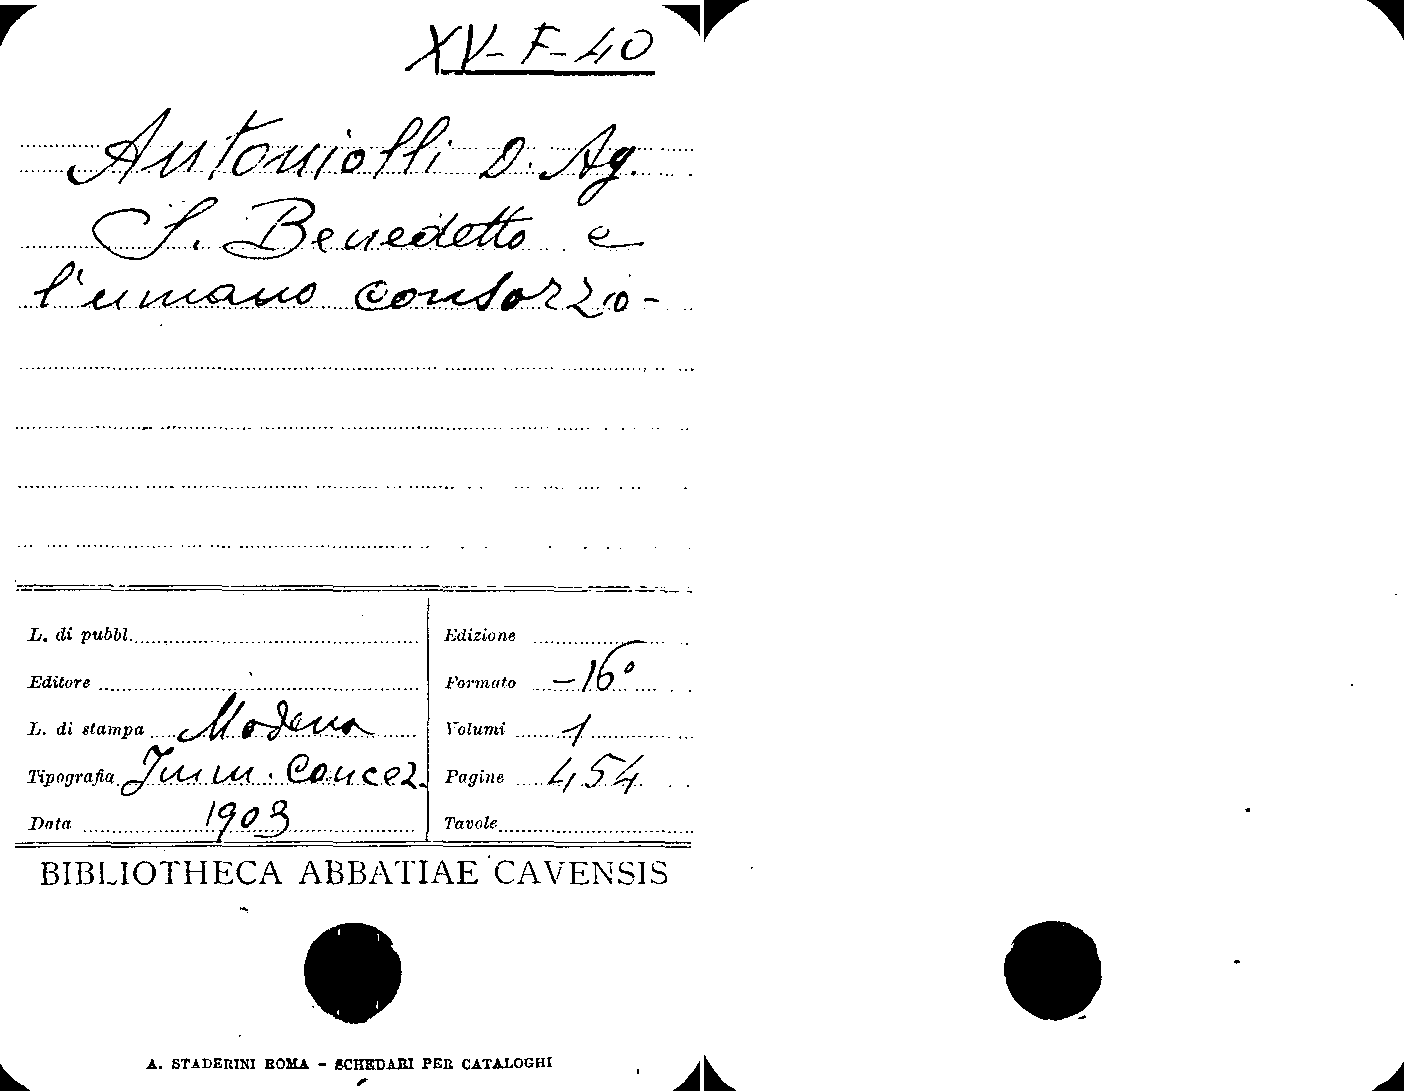 XV-F-40
Antoniolli D. Ag.
S. Benedetto e
l'umano consorzio-
L. di pubbl.
Editore
L. di stampa Modena
Tipografia Imm. Concez.
Data 1903
Edizione
Formato -16°
Volumi 1
Pagine 454
Tavole
BIBLIOTHECA ABBATIAE CAVENSIS
A. STADERINI ROMA - SCHEDARI PER CATALOGHI